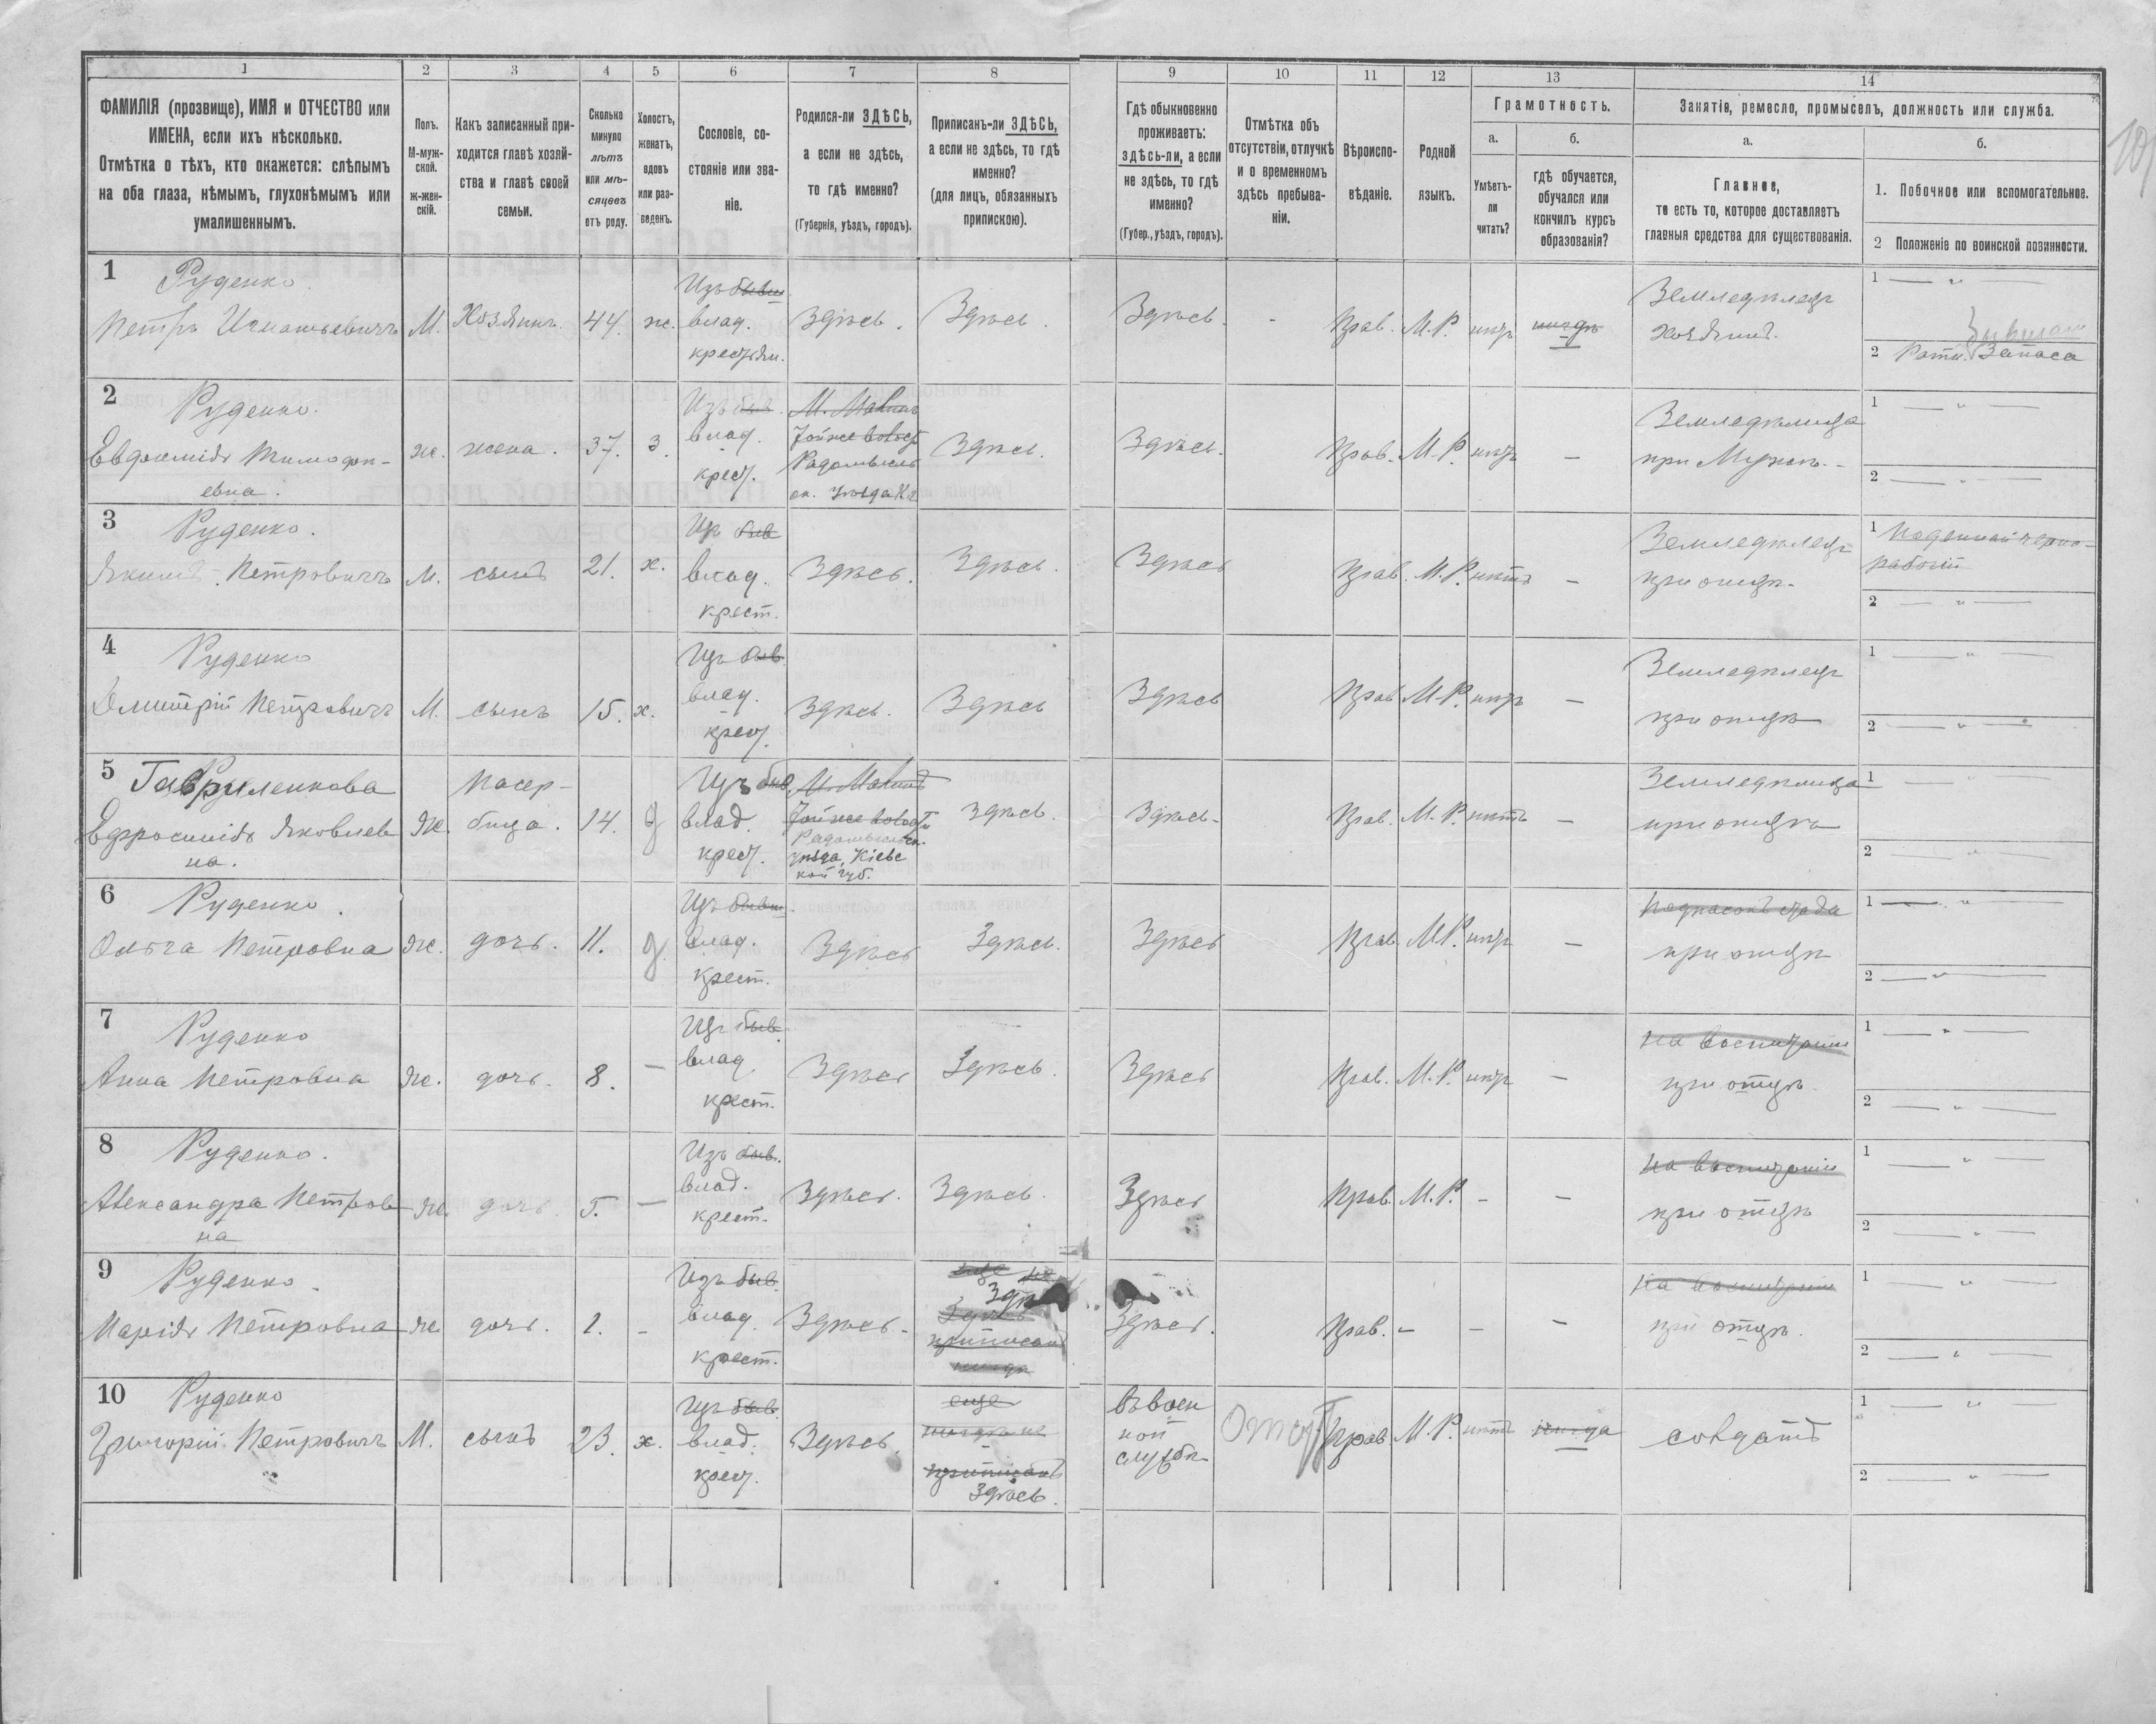 1 2 3 4 5 6 7 8 9 10 11 12 13 14
ФАМИЛІЯ (прозвище), ИМЯ и ОТЧЕСТВО или
ИМЕНА, если ихъ нѣсколько.
Отмѣтка о тѣхъ, кто окажется: слѣпымъ
на оба глаза, нѣмымъ, глухонѣмымъ или
умалишеннымъ.
Полъ.
М-муж-
ской.
ж-жен-
скій.
Какъ записанный при-
ходится главѣ хозяй-
ства и главѣ своей
семьи.
Сколько
минуло
лѣтъ
или мѣ-
сяцевъ
отъ роду.
Холостъ,
женатъ,
вдовъ
или раз-
веденъ.
Сословіе, со-
стояніе или зва-
ніе.
Родился-ли ЗДѢСЬ,
а если не здѣсь,
то гдѣ именно?
(Губернія, уѣздъ, городъ).
Приписанъ-ли ЗДѢСЬ,
а если не здѣсь, то гдѣ
именно?
(для лицъ, обязанныхъ
припискою).
Гдѣ обыкновенно
проживаетъ:
здѣсь-ли, а если
не здѣсь, то гдѣ
именно?
(Губер., уѣздъ, городъ).
Отмѣтка объ
отсутствіи, отлучкѣ
и о временномъ
здѣсь пребыва-
ніи.
Вѣроиспо-
вѣданіе.
Родной
языкъ.
Грамотность.
а.
Умѣетъ-
ли
читать?
б.
гдѣ обучается,
обучался или
кончилъ курсъ
образованія?
Занятіе, ремесло, промыселъ, должность или служба.
а.
Главное,
то есть то, которое доставляетъ
главныя средства для существованія.
б.
1. Побочное или вспомогательное.
2 Положеніе по воинской повинности.
1 Руденко
Петръ Игнатьевичъ М. Хозяинъ. 44. ж. Изъ бывш. влад. крестьян. Здѣсь. Здѣсь. Здѣсь. - Прав. М.Р. нѣтъ нигдѣ Земледѣлецъ хозяинъ. 1 — " —
2 Ратн. Запаса
2 Руденко.
Евдокмія Тимофе-
евна. ж. жена. 37. з. Изъ быв. влад. крест. М. Малинъ Тойже волости Радомысль ск. уѣзда Здѣсь. Здѣсь. Прав. М.Р. нѣтъ — Земледѣлица при Мужѣ. 1 — " —
2 — " —
3 Руденко.
Якимъ Петровичъ М. сынъ 21. х. Изъ быв влад. крест. Здѣсь. Здѣсь. Здѣсь Прав. М.Р. нѣтъ — Земледѣлецъ при отцѣ. 1 Поденный черно-
рабочій
2 — " —
4 Руденко
Дмитрій Петровичъ М. сынъ 15. х. Изъ быв. влад. крест. Здѣсь. Здѣсь Здѣсь Прав М.Р. нѣтъ — Земледѣлецъ при отцѣ 1 — " —
2 — " —
5 Гавриленкова
Ефросинія Яковлев
на. Ж. Пасер-
бица. 14. д Изъ быв. влад. крест. М. Малинъ Тойже волости Радомысльск. уѣзда, Кіевс
кой губ. Здѣсь. Здѣсь. Прав. М.Р. нѣтъ — Земледѣлица при отцѣ 1 — " —
2 — " —
6 Руденко.
Ольга Петровна Ж. дочь. 11. д. Изъ бывш. влад. крест. Здѣсь Здѣсь. Здѣсь Прав. М.Р. нѣтъ — Подпасокъ стада при отцѣ 1 — " —
2 — " —
7 Руденко
Анна Петровна Ж. дочь. 8. — Изъ быв. влад крест. Здѣсь Здѣсь. Здѣсь Прав. М.Р. нѣтъ — на воспитаніи при отцѣ. 1 — " —
2 — " —
8 Руденко.
Александра Петров
на Ж. дочь 5. — Изъ быв. влад. крест. Здѣсь. Здѣсь. Здѣсь Прав. М.Р. - — на воспитаніи при отцѣ 1 — " —
2 — " —
9 Руденко.
Марія Петровна Ж. дочь. 1. - Изъ быв. влад. крест. Здѣсь. еще не Здѣсь приписанъ нигдѣ Здѣсь. Прав. - - — на воспитаніи при отцѣ. 1 — " —
2 — " —
10 Руденко
Григорій Петровичъ М. сынъ 23. х. Изъ быв. влад. крест. Здѣсь. еще нигдѣ не приписанъ Здѣсь. въ воен
ной
службѣ Отсут Прав М.Р. нѣтъ нигдѣ солдатъ 1 — " —
2 — " —